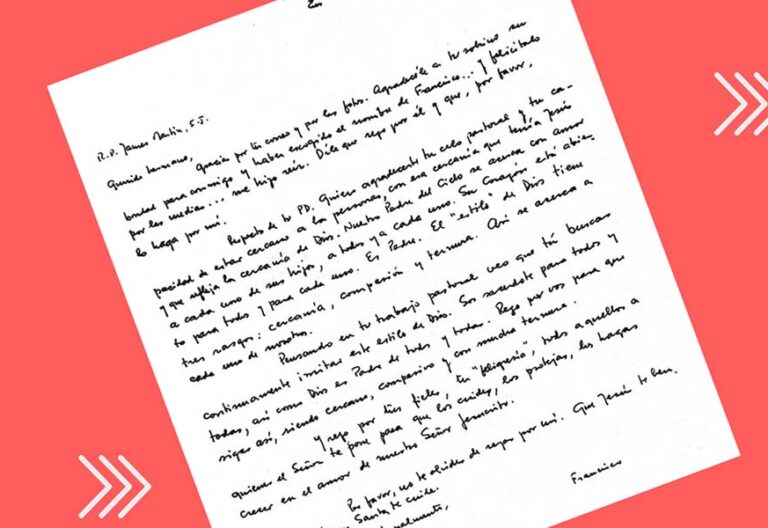 R.P. James Martin, S.J.
Querido hermano,
Gracias por tu correo y por las fotos. Agradecele a tu sobrino su
bondad para conmigo y haber escogido el nombre de Francisco... y felicitalo
por las medias... me hizo reir. Dile que rezo por él y que, por favor,
lo haga por mí.
Respecto de tu P.D. Quiero agradecerte tu celo pastoral y tu ca-
pacidad de estar cercano a las personas, con esa cercanía que tenía Jesús
y que refleja la cercanía de Dios. Nuestro Padre del Cielo se acerca con amor
a cada uno de sus hijos, a todos y a cada uno. Su Corazón está abier-
to para todos y para cada uno. Es Padre. El "estilo" de Dios tiene
tres rasgos: cercanía, compasión y ternura. Así se acerca a
cada uno de nosotros.
Pensando en tu trabajo pastoral veo que tú buscas
continuamente imitar este estilo de Dios. Sos sacerdote para todos y
todas, así como Dios es Padre de todos y todas. Rezo por vos para que
sigas así, siendo cercano, compasivo y con mucha ternura.
Y rezo por tus fieles, tu "feligresía", todos aquellos a
quienes el Señor te pone para que los cuides, los protejas, los hagas
crecer en el amor de nuestro Señor Jesucristo.
Por favor, no te olvides de rezar por mí. Que Jesús te ben.
Santa te cuide.
Francisco